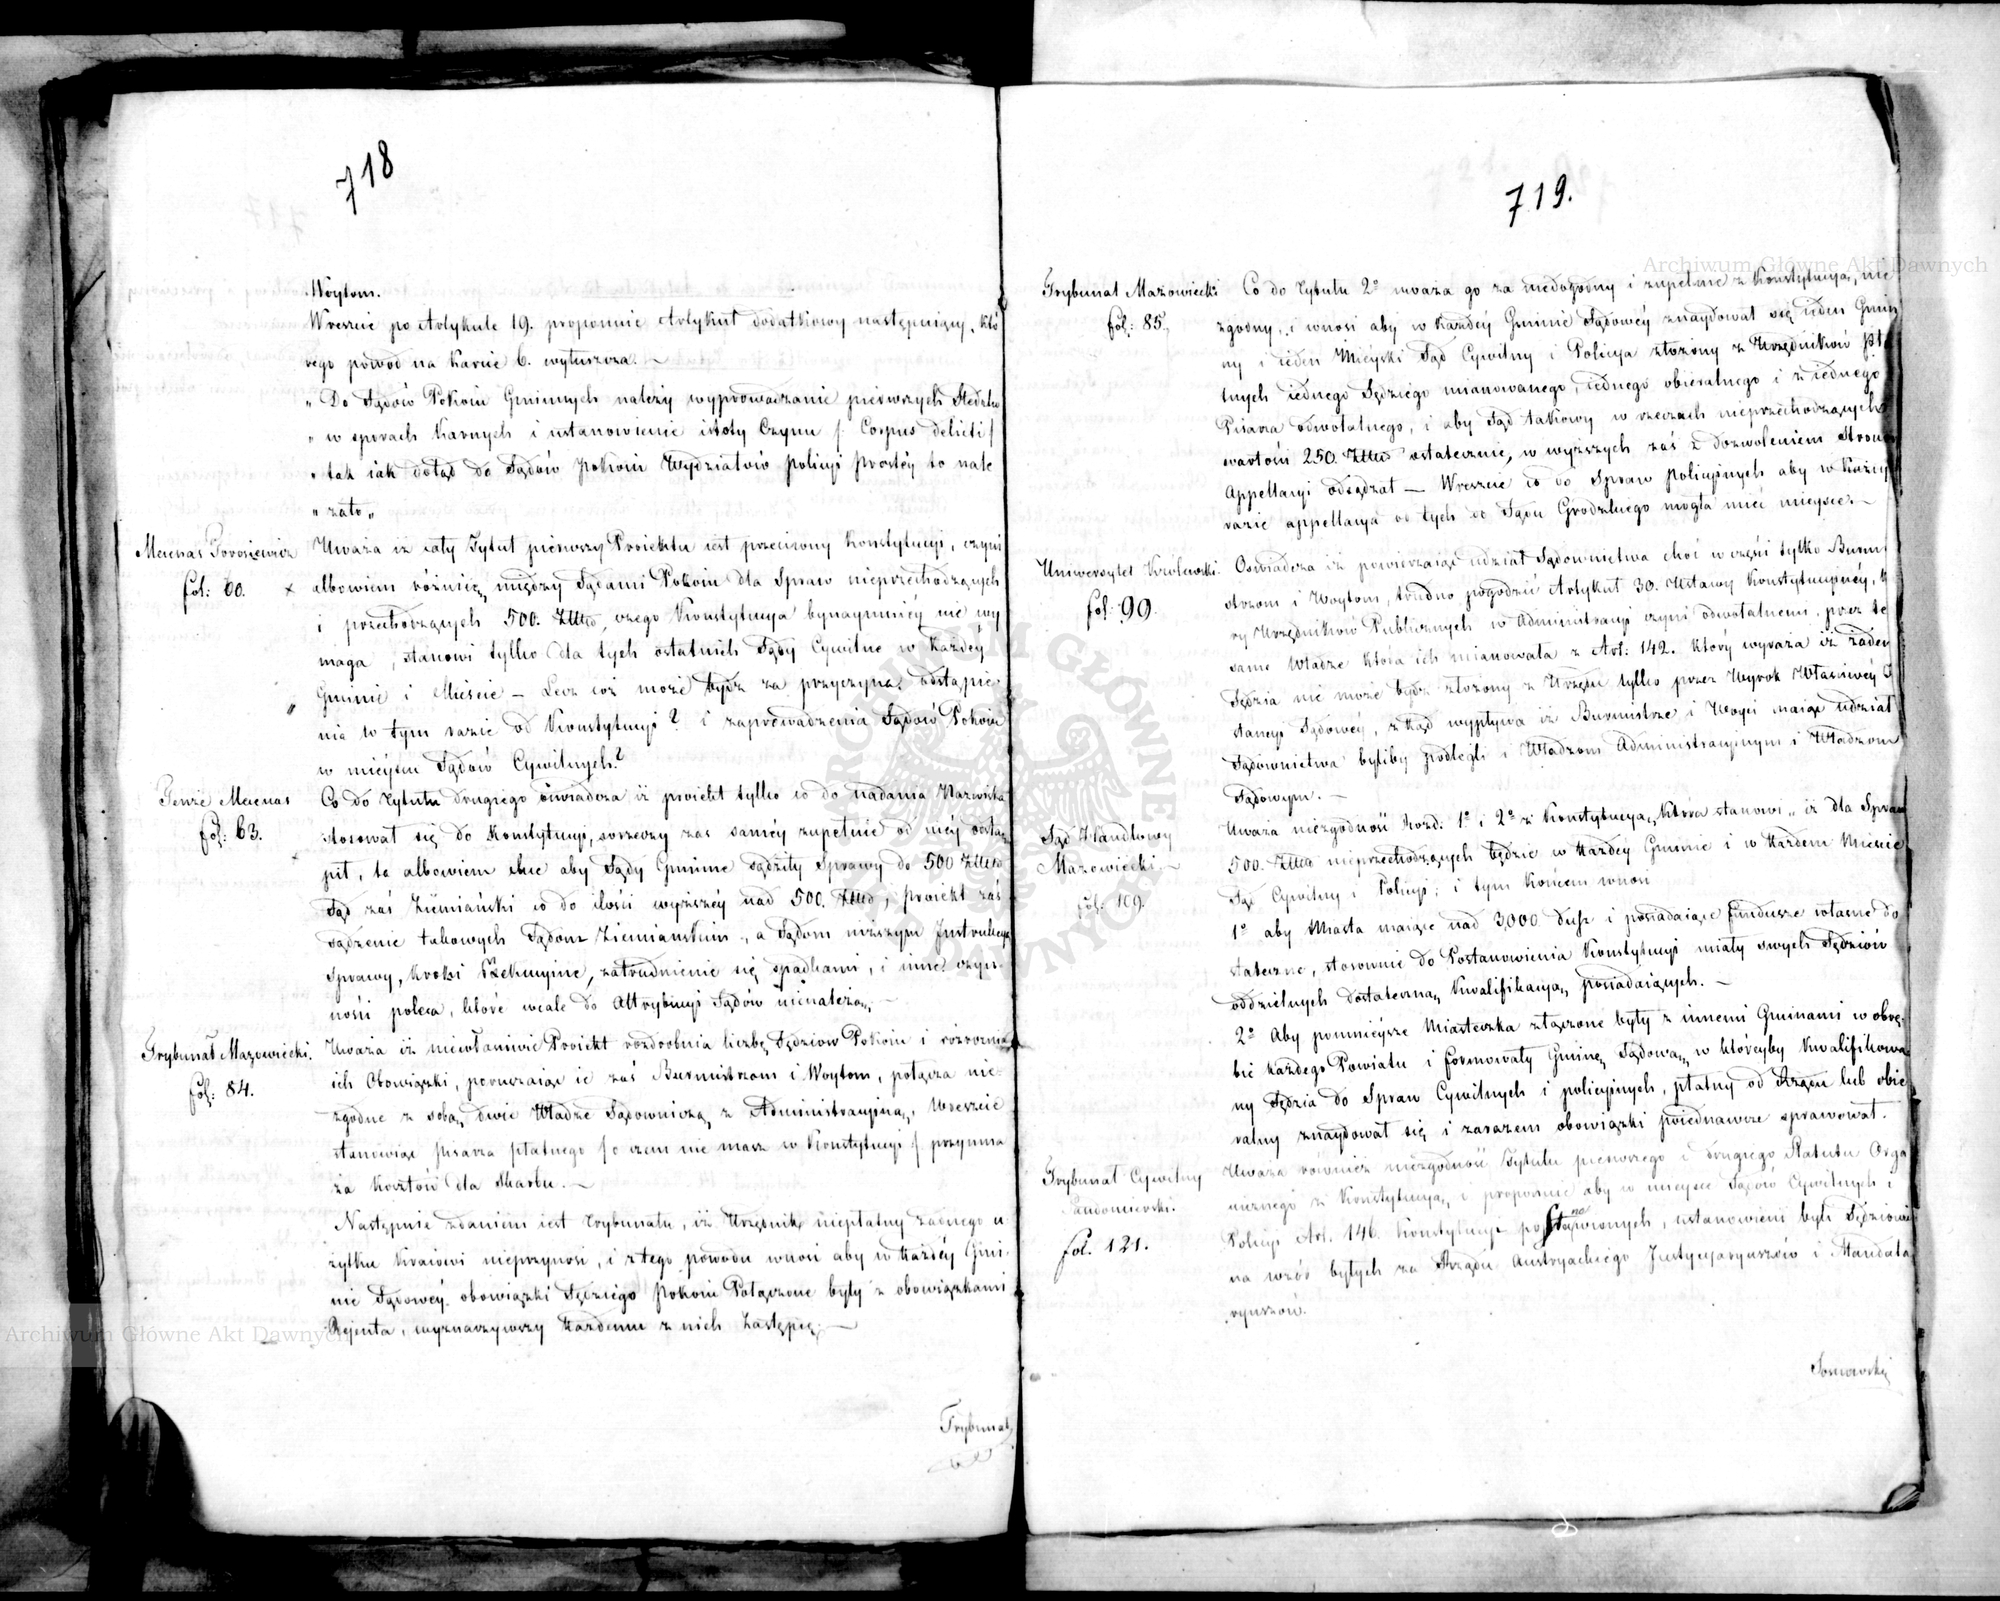 718
Woytom.
Wreszcie po Artykule 19. proponuie Artykuł dodatkowy następuiący, któ
rego powód na karcie 6. wyłuszcza. —
„ Do Sądów Pokoiu Gminnych należy wyprowadzanie pierwszych Śledztw
„ w sporach karnych i ustanowienie istoty Czynu /: Corpus delicti /
„ tak iak dotąd do Sądów Pokoiu Wydziałów policyi prostéy to nale
„ żało „
Mecenas Torosiewicz
fol: 60.
Uważa iż cały Tytuł pierwszy Proiektu iest przeciwny Konstytucyi, czyni
albowiem różnicę między Sądami Pokoiu dla Spraw nieprzechodzących
i przechodzących 500. Złłtd, czego Konstytucya bynaymniéy nie wy
maga, stanowi tylko dla tych ostatnich Sądy Cywilne w każdéy
Gminie i Mieście — Lecz coż może bydź za przyczyna odstąpie
nia w tym razie od Konstytucyi? i zaprowadzenia Sądów Pokoiu
w mieyscu Sądów Cywilnych?
Tenże Mecenas
fol: 63.
Co do Tytułu drugiego oświadcza iż proiekt tylko co do nadania Nazwiska
stosował się do Konstytucyi, w rzeczy zaś saméy zupełnie od niéy odstą
pił, ta albowiem chce aby Sądy Gminne sądziły Sprawy do 500 Złłtd
Sąd zaś Ziemiański co do ilości wyższéy nad 500. Złłtd, proiekt zaś
sądzenie takowych Sądom Ziemiańskim, a Sądom niższym Instrukcyę
Sprawy, kroki Exekucyine, zatrudnienie się spadkami, i inne czyn-
ności poleca, które wcale do Attrybucyi Sądów nienależą. —
Trybunał Mazowiecki.
fol: 84.
Uważa iż niewłaściwie Proiekt rozdrobnia liczbę Sędziów Pokoiu i rozróżnia
ich Obowiązki, poruczaiąc ie zaś Burmistrzom i Woytom, połącza nie-
zgodne z sobą dwie Władze Sądowniczą z Administracyiną, Wreszcie
stanowiąc pisarza płatnego /: o czem nie masz w Konstytucyi :/ przymna
ża kosztów dla Skarbu. —
Następnie zdaniem iest Trybunału, iż Urzędnik niepłatny żadnego u
żytku Kraiowi nieprzynosi, i z tego powodu wnosi aby w każdéy Gmi-
nie Sądowéy obowiązki Sędziego Pokoiu Połączone były z obowiązkami
Rejenta, wyznaczywszy każdemu z nich Zastępcę. —
Trybunał
719.
Trybunał Mazowiecki
fol: 85.
Co do Tytułu 2o uważa go za niedogodny i zupełnie z Konstytucyą nie
zgodny, i wnosi aby w każdéy Gminie Sądowéy znaydował się ieden Gmin
ny i ieden Mieyski Sąd Cywilny i Policyi złożony z Urzędników pła
tnych iednego Sędziego mianowanego, iednego obieralnego i z iednego
Pisarza odwołalnego, i aby Sąd takowy w rzeczach nieprzechodzących
wartości 250. Złłtd ostatecznie, w wyższych zaś z dozwoleniem Stronom
Appellacyi odsądzał — Wreszcie co do Spraw Policyinych aby w każdym
razie appellacya od tych do Sądu Grodzkiego mogła mieć mieysce. —
Uniwersytet Królewski.
fol: 99.
Oświadcza iż powierzaiąc udział Sądownictwa choć w części tylko Burmi
strzom i Woytom, trudno pogodzić Artykuł 30. Ustawy Konstytucyinéy, któ
ry Urzędników Publicznych w Administracyi czyni odwołalnemi, przez tę
samę Władzę która ich mianowała z Art: 142. który wyraża iż żaden
Sędzia nie może bydź złożony z Urzędu tylko przez Wyrok Właściwéy In
stancyi Sądowéy, zkąd wypływa iż Burmistrze i Woyci maiąc udział
Sądownictwa byliby podlegli i Władzom Administracyinym i Władzom
Sądowym. —
Sąd Handlowy
Mazowiecki. —
fol: 109.
Uważa niezgodność Rozd: 1o i 2o z Konstytucyą, która stanowi „ iż dla Spraw
500. Złłtd nieprzechodzących będzie w każdéy Gminie i w każdem Mieście
Sąd Cywilny i Policyi; i tym końcem wnosi
1o aby Miasta maiące nad 3,000 dusz i posiadaiące fundusze własne do
stateczne, stosownie do Postanowienia Konstytucyi miały swych Sędziów
oddzielnych dostateczną Kwalifikacyą posiadaiących. —
2o Aby pomnieysze Miasteczka złączone były z innemi Gminami w obrę-
bie każdego Powiatu i formowały Gminę Sądową, w któréyby Kwalifikowa
ny Sędzia do Spraw Cywilnych i policyinych, płatny od Rządu lub obie
ralny znaydował się i zarazem obowiązki poiednawcze sprawował.
Trybunał Cywilny
Sandomierski.
fol. 121.
Uważa również niezgodność Tytułu pierwszego i drugiego Statutu Orga
nicznego z Konstytucyą, i proponuie aby w mieysce Sądów Cywilnych i
Policyi Art. 146 Konstytucyi postanowionych, ustanowieni byli Sędziowie
na wzór byłych za Rządu Austryackiego Justycyaryuszów i Mandata
ryuszów.